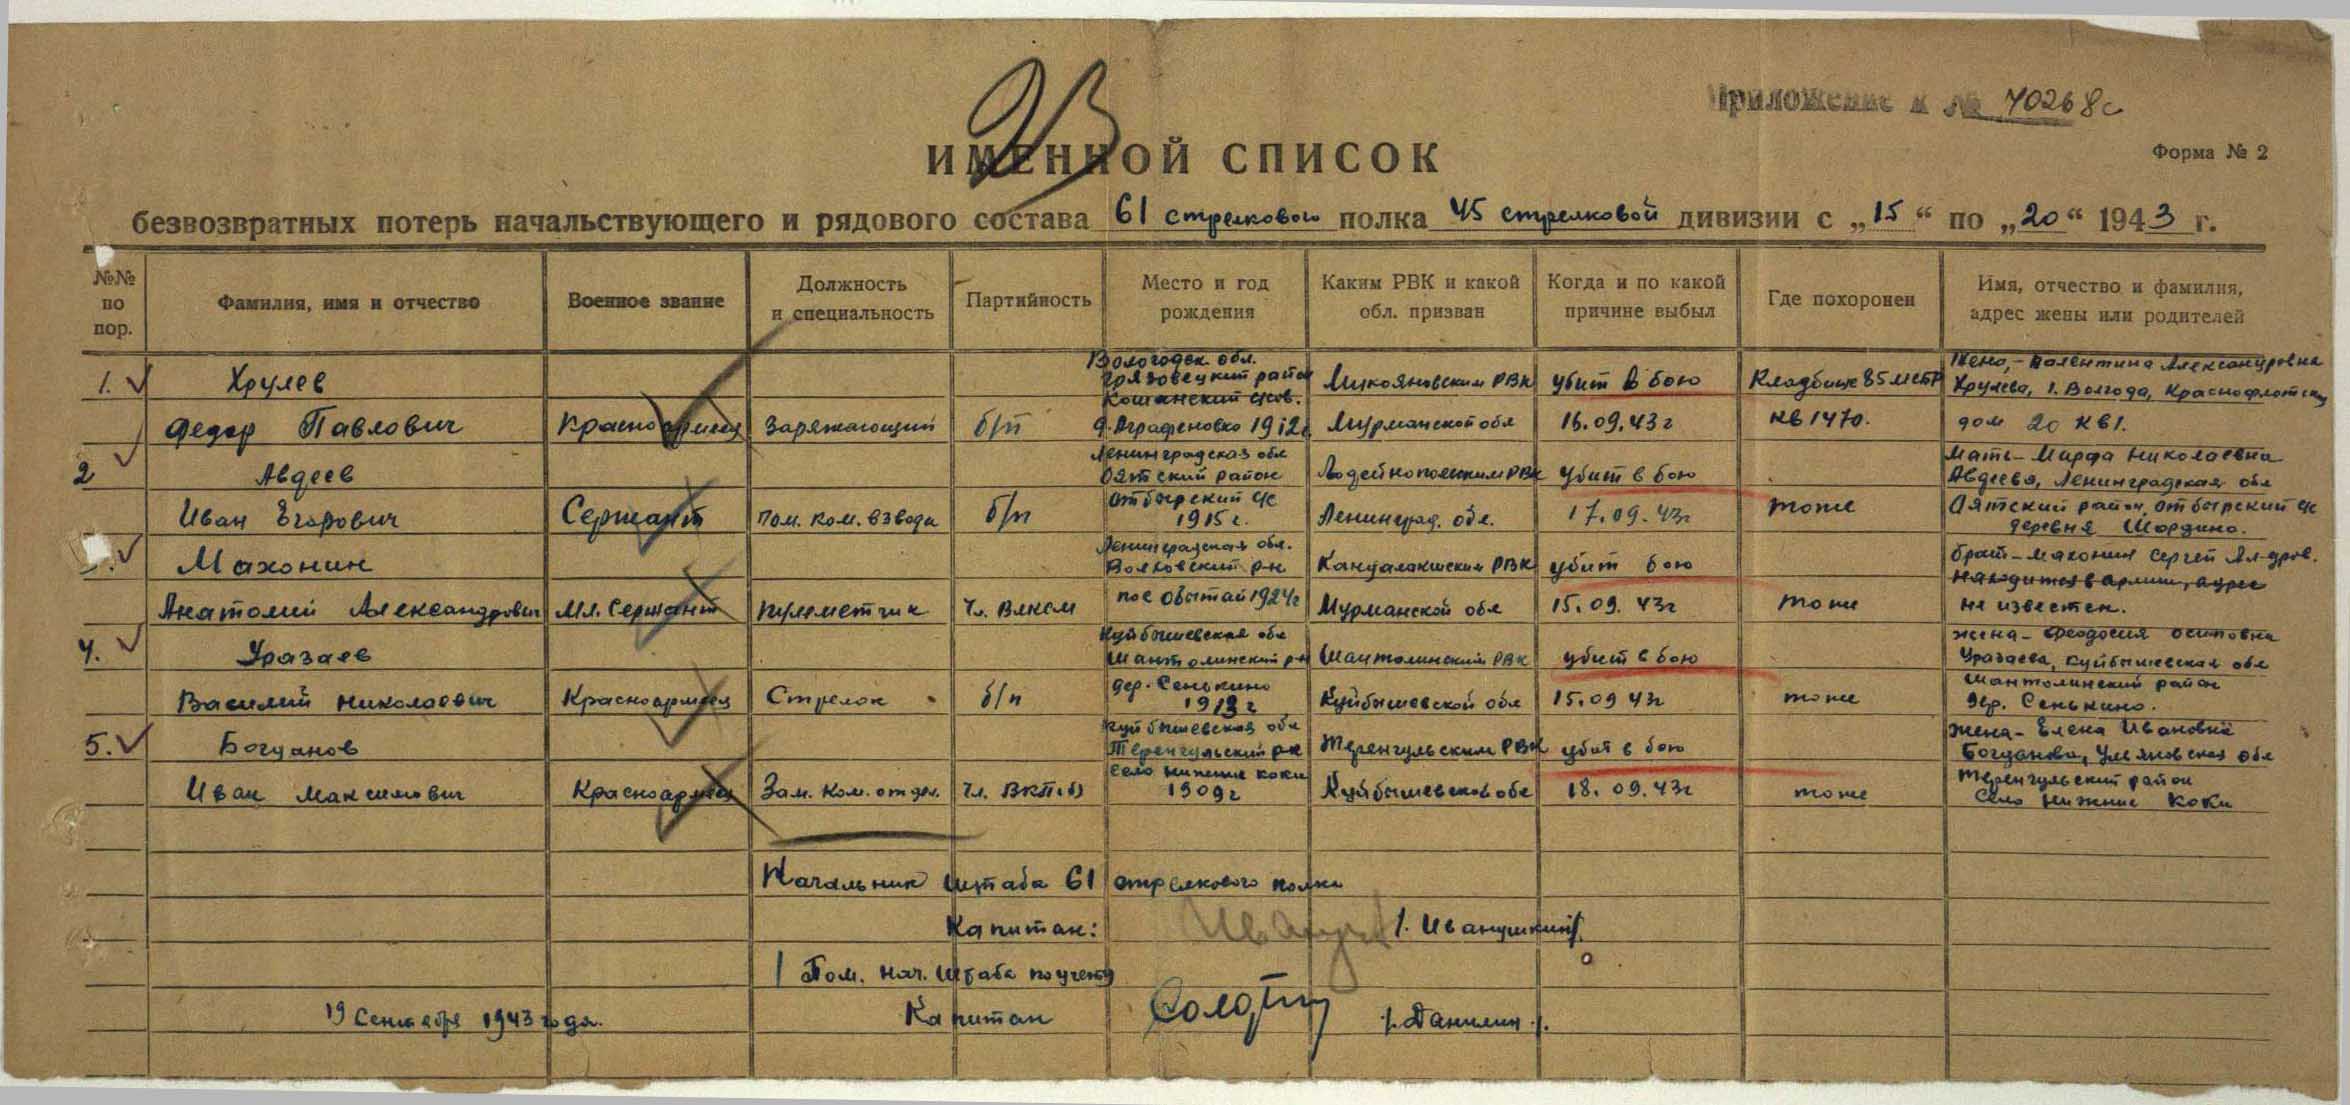 Приложение к № 70268с
ИМЕННОЙ СПИСОК
Форма № 2
безвозвратных потерь начальствующего и рядового состава 61 стрелкового полка 45 стрелковой дивизии с „15“ по „20“ 1943 г.
№№ по пор.
Фамилия, имя и отчество
Военное звание
Должность и специальность
Партийность
Место и год рождения
Каким РВК и какой обл. призван
Когда и по какой причине выбыл
Где похоронен
Имя, отчество и фамилия, адрес жены или родителей
1.
Хрулев
Федор Павлович
Красноармеец
Заряжающий
б/п
Вологодск обл.
Грязовецкий район
д. Аграфеновка 1912г
Микояновским РВК
Мурманской обл
убит в бою
16.09.43г
Кладбище 85 МСБР
кв 1470.
Жена,- Валентина Александровна
Хрулева, г. Вологда, Краснофлотская
дом 20 кв 1.
2
Авдеев
Иван Егорович
Сержант
Пом. ком. взвода
б/п
Ленинградская обл
Оятский район
1915г.
Лодейнопольским РВК
Ленинград. обл.
убит в бою
17.09.43г
тоже
Мать- Марфа Николаевна
Авдеева, Ленинградская обл
Оятский район,
деревня Шордино.
Махонин
Анатолий Александрович
Мл. Сержант
пулеметчик
Чл. ВЛКСМ
Ленинградская обл.
Волховский р-н
1924г
Кандалакшским РВК
Мурманской обл
убит бою
15.09.43г
тоже
брат- Махонин Сергей Ал-дров.
находится в армии, адрес
не известен.
4.
Уразаев
Василий Николаевич
Красноармеец
Стрелок
б/п
Куйбышевская обл
Шанталинский р-н
дер. Сенькино
1913г
Шанталинским РВК
Куйбышевской обл
убит в бою
15.09 43г
тоже
жена- Феодосия Осиповна
Уразаева, Куйбышевская обл
Шанталинский район
дер. Сенькино.
5.
Богданов
Иван Максимович
Красноармеец
Зам. ком. отдел.
Чл. ВКП(б)
Куйбышевская обл
Теренгульский р-н
село Нижние Коки
1909г
Теренгульским РВК
Куйбышевской обл
убит в бою
18.09.43г
тоже
жена- Елена Ивановна
Богданова, Ульяновская обл
Теренгульский район
село Нижние Коки
Начальник штаба 61 стрелкового полка
Капитан: /. Иванушкин/.
Пом. нач. штаба по учету
19 Сентября 1943 года. Капитан /. Данилин ./.